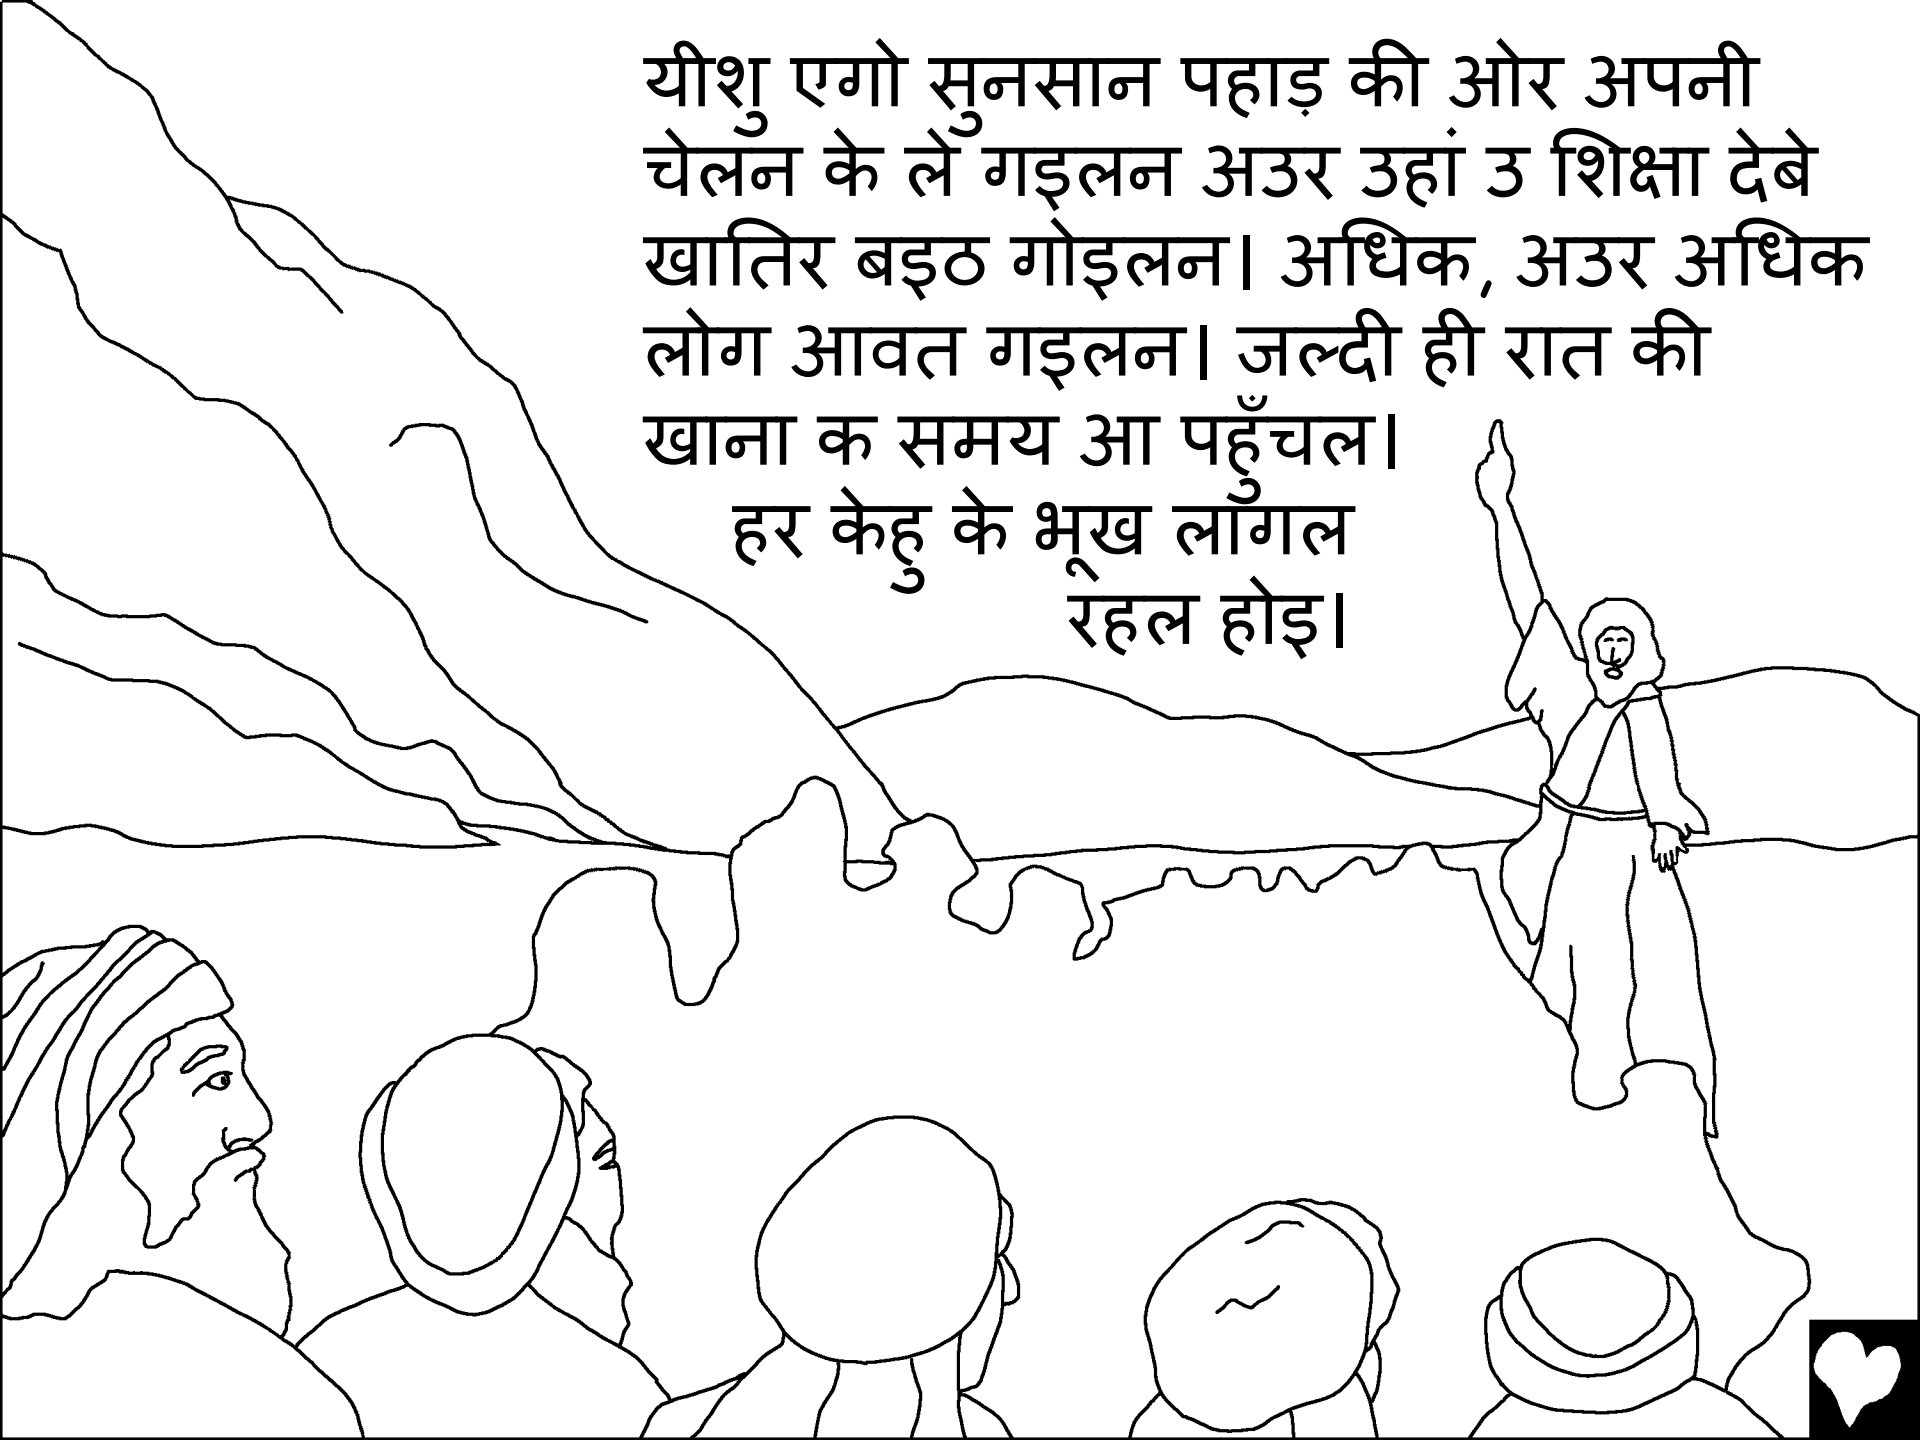 यीशु एगो सुनसान पहाड़ की ओर अपनी
चेलन के ले गइलन अउर उहां उ शिक्षा देबे
खातिर बइठ गोइलन। अधिक, अउर अधिक
लोग आवत गइलन। जल्दी ही रात की
खाना क समय आ पहुँचल।
हर केहु के भूख लागल
रहल होइ।